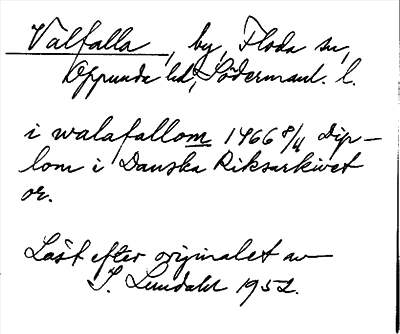 Valfalla, by, Floda sn,
Oppunda hd, Södermanl. l.
i walafallom 1466 8/4 Dip-
lom i Danska Riksarkivet
or.
Läst efter originalet av
I. Lundahl 1952.